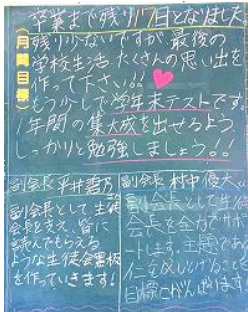 卒業まで残り17日となりました
残り少ないですが最後の
学校生活たくさんの思い出を
作って下さい!!
もう少しで学年末テストです
1年間の集大成を出せるよう、
しっかりと勉強しましょう。!!
(月間目標)
副会長 平井
副会長として生徒
会を支え、皆に
読んでもらえる
ような生徒会黒板
を作っていきます!
副会長 村中優大
副会長として生徒
会を全力でサポ
ートします。主題である
を成しとげることを
目標にがんばります。